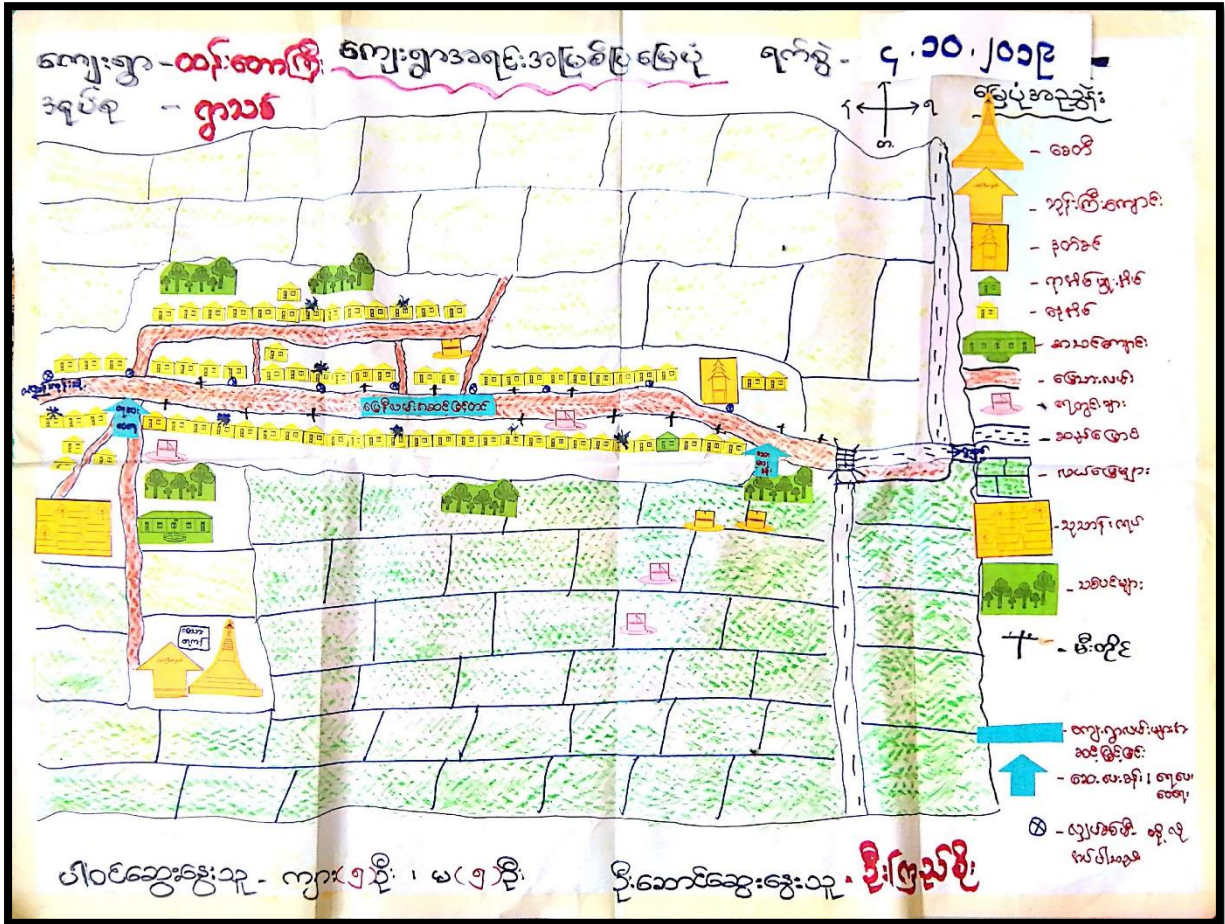 ကျေးရွာ - ထန်းတောကြီး ကျေးရွာအရင်းအမြစ်ပြမြေပုံ ရက်စွဲ - ၄.၁၀.၂၀၁၉
အုပ်စု - ရွာသစ်
မြေပုံအညွှန်း
တ
- စေတီ
- ဘုန်းကြီးကျောင်း
- နတ်စင်
- နေအိမ်
- စာသင်ကျောင်း
- မြေသားလမ်း
- ရေတွင်းများ
- ဆည်မြောင်း
- လယ်မြေများ
- သုသာန်
- သစ်ပင်များ
- မီးတိုင်
- ကျေးရွာလမ်းများအား
အဆင့်မြှင့်ခြင်း
- ဆေးပေးခန်း၊
- လျှပ်စစ်မီး
မြေနီလမ်းအဆင့်မြှင့်တင်
ပါဝင်ဆွေးနွေးသူ - ကျား(၅)ဦး ၊ မ(၅)ဦး ဦးဆောင်ဆွေးနွေးသူ - ဦးကြည်စိုး